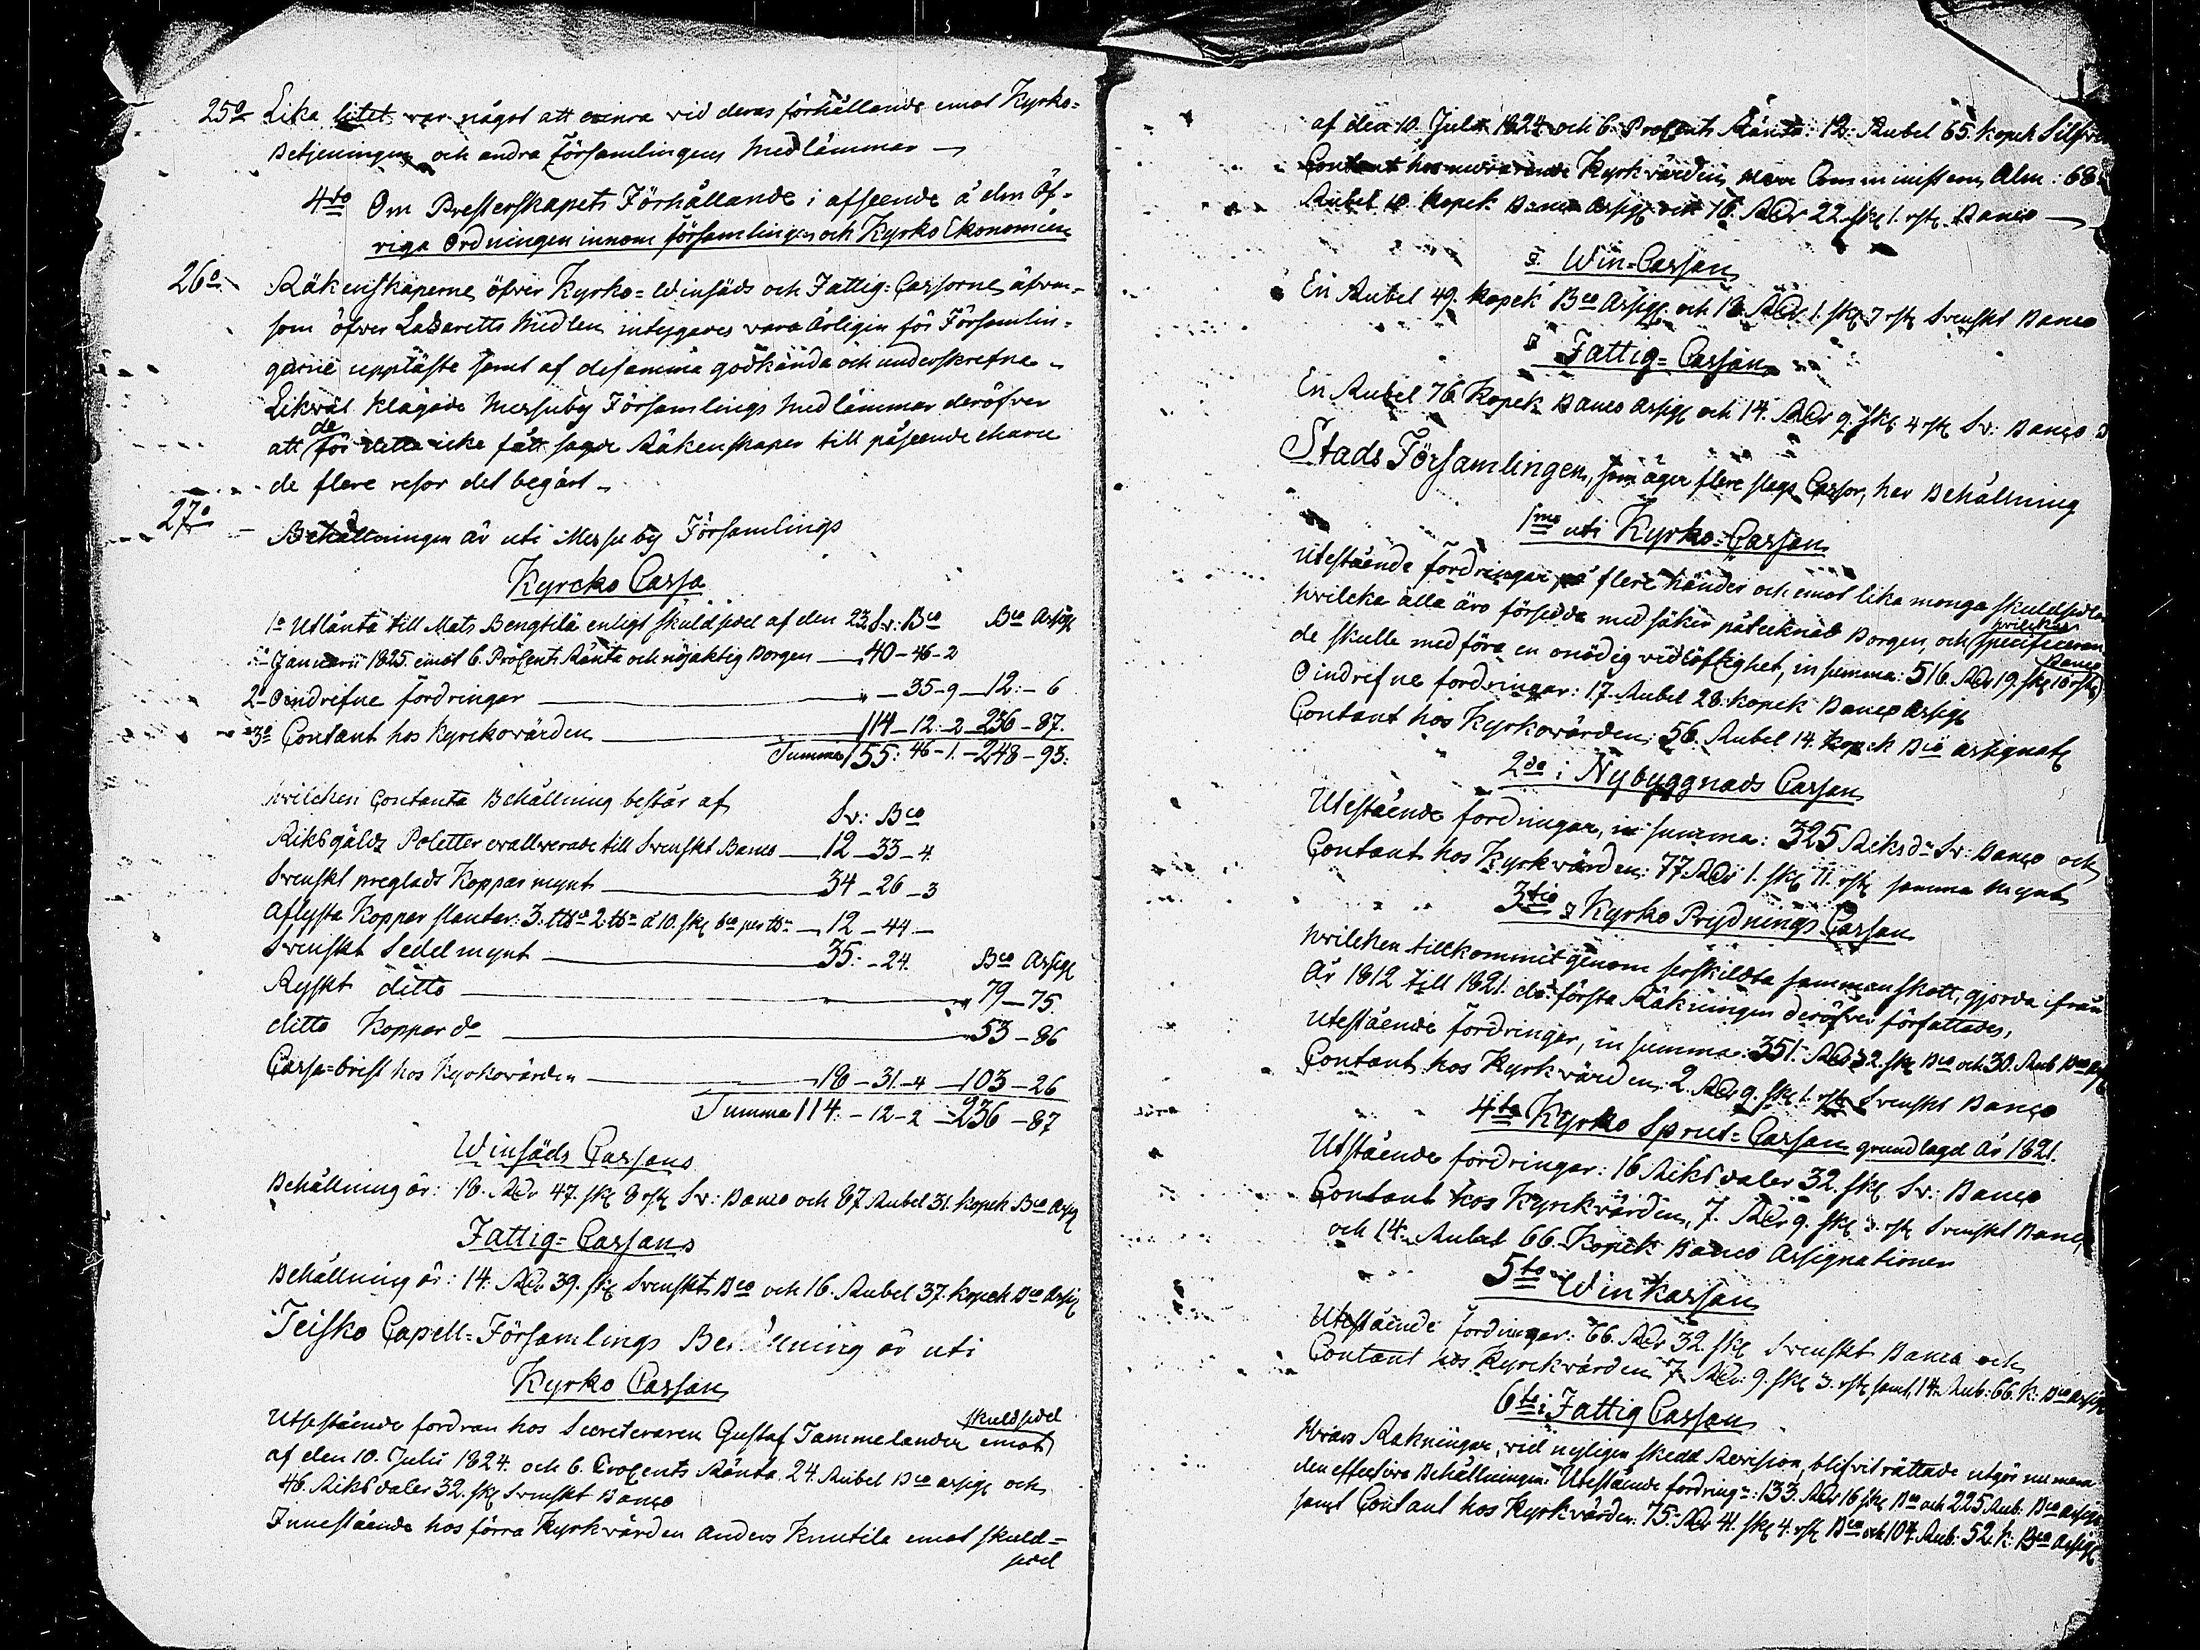 25o Lika litet var något att erinra vid deras förhållande emot Kyrko-
Betjeningen och andra Församlingens Medlämmar —
4to Om Presterskapets Förhållande i afseende å den Öf-
riga Ordningen innom församlingen och Kyrko Ekonomien
26o Räkenskaperne öfver Kyrko- Winsäds och Fattig-Cassorne, äfven-
som öfver Lazaretts Medlen intygades vara årligen för Församlin-
garne uppläste samt af desamma godkända och underskrefne —
Likväl klagade Messuby Församlings Medlämmar deröfver
att de för detta icke fått sagde Räkenskaper till påseende ehuru
de flere resor det begärt —
27o Behållningen är uti Messuby Församlings
Kyrcko Cassa
1o Utlånta till Mats Bengtilä enligt skuldsedel af den 23 Sv: Bco Bco Assig
Januarii 1825 emot 6. Procents Ränta och nöjaktig Borgen — 40-46-2
2o Oindrifne fordringar — " — 35-9 — 12:-6
3o Contant hos Kyrckovärden — 114-12-2 — 236-87.
Summa 155:46-1.-248-93:
hvilcken Contanta Behållning består af
Sv: Bco
Riksgäldz Poletter evalverade till Svenskt Banco — 12-33-4.
Svenskt preglade Koppar mynt — 34-26-3
Aflysta Koppar slantar: 3. 2 à 10. sk bco per — 12-44-
Svenskt Sedel mynt — 35:-24. Bco Assig
Ryskt ditto — 79-75.
ditto Koppar do — 53-86
Cassa-brist hos Kyrkovärden — 18-31-4 — 103-26
Summa 114.-12-2 — 236-87
Winsäds Cassans
Behållning är: 18. Rdr 47. sk 8 rst Sv: Banco och 87 Rubel 31. kopek Bco Assig
Fattig-Cassans
Behållning är: 14. Rdr 39. sk Svenskt Bco och 16. Rubel 37. kopek Bco Assig
Teisko Capell-Församlings Behållning är uti
Kyrko Cassan
Utestående fordran hos Secreteraren Gustaf Tammelander emot skuldsedel
af den 10. Julii 1824. och 6. Procents Ränta 24. Rubel Bco assig och
46. Riksdaler 32. sk Svenskt Banco
Innestående hos förra Kyrkvärden Anders Knutila emot skuld-
sedel
af den 10. Julii 1824 och 6. Procents Ränta: 12: Rubel 65. kopek Silfver
Contant hos nuvarande Kyrkvärden Herr Comministern Alm: 68
Rubel 10. kopek Banco Assig och 18. Rdr 22. sk 1. rst. Banco —
Win-Cassan
En Rubel 49. kopek Bco Assig och 18 Rdr 1. sk 7 rst Svenskt Banco
Fattig-Cassan
En Rubel 76 Kopek Banco Assig och 14. Rdr 9. sk 4 rst Sv: Banco
Stads Församlingen, som äger flere slags Cassor, har Behållning
1mo uti Kyrko-Cassan
Utestående fordringar på flere händer och emot lika monga skuldsedlar
hvilcka alla äro försedda med säker påtecknad Borgen, och hvilckas specificeran
de skulle medföra en onödig vidlöftighet, in summa: 516. Rdr 19. sk 10 rst Banco
Oindrifne fordringar: 17. Rubel 28. kopek Banco Assig
Contant hos Kyrkovärden: 56. Rubel 14. kopek Bco assignat
2do i Nybyggnads Cassan
Utestående fordringar, in summa: 325 Riksdr Sv: Banco och
Contant hos Kyrkvärden: 77 Rdr 1. sk 11. rst samma Mynt
3tio Kyrko Prydnings Cassan
hvilcken tillkommit genom serskildta sammanskott, gjorda ifrån
År 1812 till 1821. då första Räkningen deröfver författades,
Utestående fordringar, in summa: 351. Rdr 32. sk Bco och 30. Rub Bco
Contant hos Kyrkvärden: 2. Rdr 9. sk 1. rst Svenskt Banco
4to Kyrko Sprut-Cassan grundlagd år 1821.
Utstående fordringar: 16 Riksdaler 32. sk Sv: Banco
Contant hos Kyrckvärden, 7. Rdr 9. sk 3. rst Svenskt Banc
och 14. Rubel 66. Kopek Banco Assignationer
5to Winkassan
Utestående fordringar: 66. Rdr 32. sk Svenskt Banco och
Contant hos Kyrckvärden 7 Rdr: 9. sk 3. rst samt 14. Rub: 66. K: Bco Assig
6to i Fattig Cassan
Hvars Räkningar, vid nyligen skedd Revision, blifvit rättade utgör numera
den effective Behållningen: Utestående fordring:r 133. Rdr 16 sk Bco och 225 Rub. Bco Assig
samt Contant hos Kyrkvärden: 75. Rdr 41. sk 4. rst Bco och 104 Rub: 52. K: Bco Assig